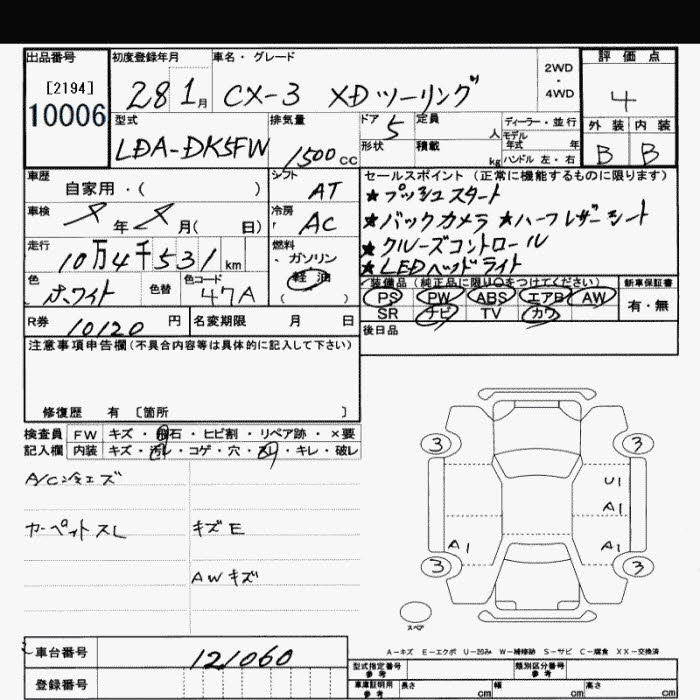 出品番号 初度登録年月 車名・グレード 2WD・4WD 評価点
[2194]
10006 28 1月 CX-3 XDツーリング 4
型式 排気量 ドア 定員 ディーラー・並行 外装 内装
LDA-DK5FW 1500cc 5 人 モデル年式 年 B B
形状 積載 kg ハンドル 左・右
車歴 自家用・( ) シフト AT セールスポイント (正常に機能するものに限ります)
★プッシュスタート
車検 年 月( 日) 冷房 AC ★バックカメラ ★ハーフレザーシート
走行 10万4千531km 燃料 ガソリン・軽油 ( ) ★クルーズコントロール
★LEDヘッドライト
色 ホワイト 色替 色コード 47A 装備品 (純正品に限り○をつけてください) 新車保証書
PS PW ABS エアB AW 有・無
SR ナビ TV カワ
R券 10120円 名変期限 月 日 後日品
注意事項申告欄(不具合内容等は具体的に記入して下さい)
修復歴 有 〔箇所 〕
検査員 FW キズ・飛石・ヒビ割・リペア跡・×要
記入欄 内装 キズ・汚レ・コゲ・穴・スレ・キレ・破レ
A/C冷エズ
カーペットスレ キズE
AWキズ
3 3
U1
A1
A1 A1
3 3
スペア
A-キズ E-エクボ U-凹み W-補修跡 S-サビ C-腐食 XX-交換済
車台番号 121060
型式指定番号 参考 類別区分番号 参考
登録番号 車庫証明用 参考 長さ cm 幅 cm 高さ cm